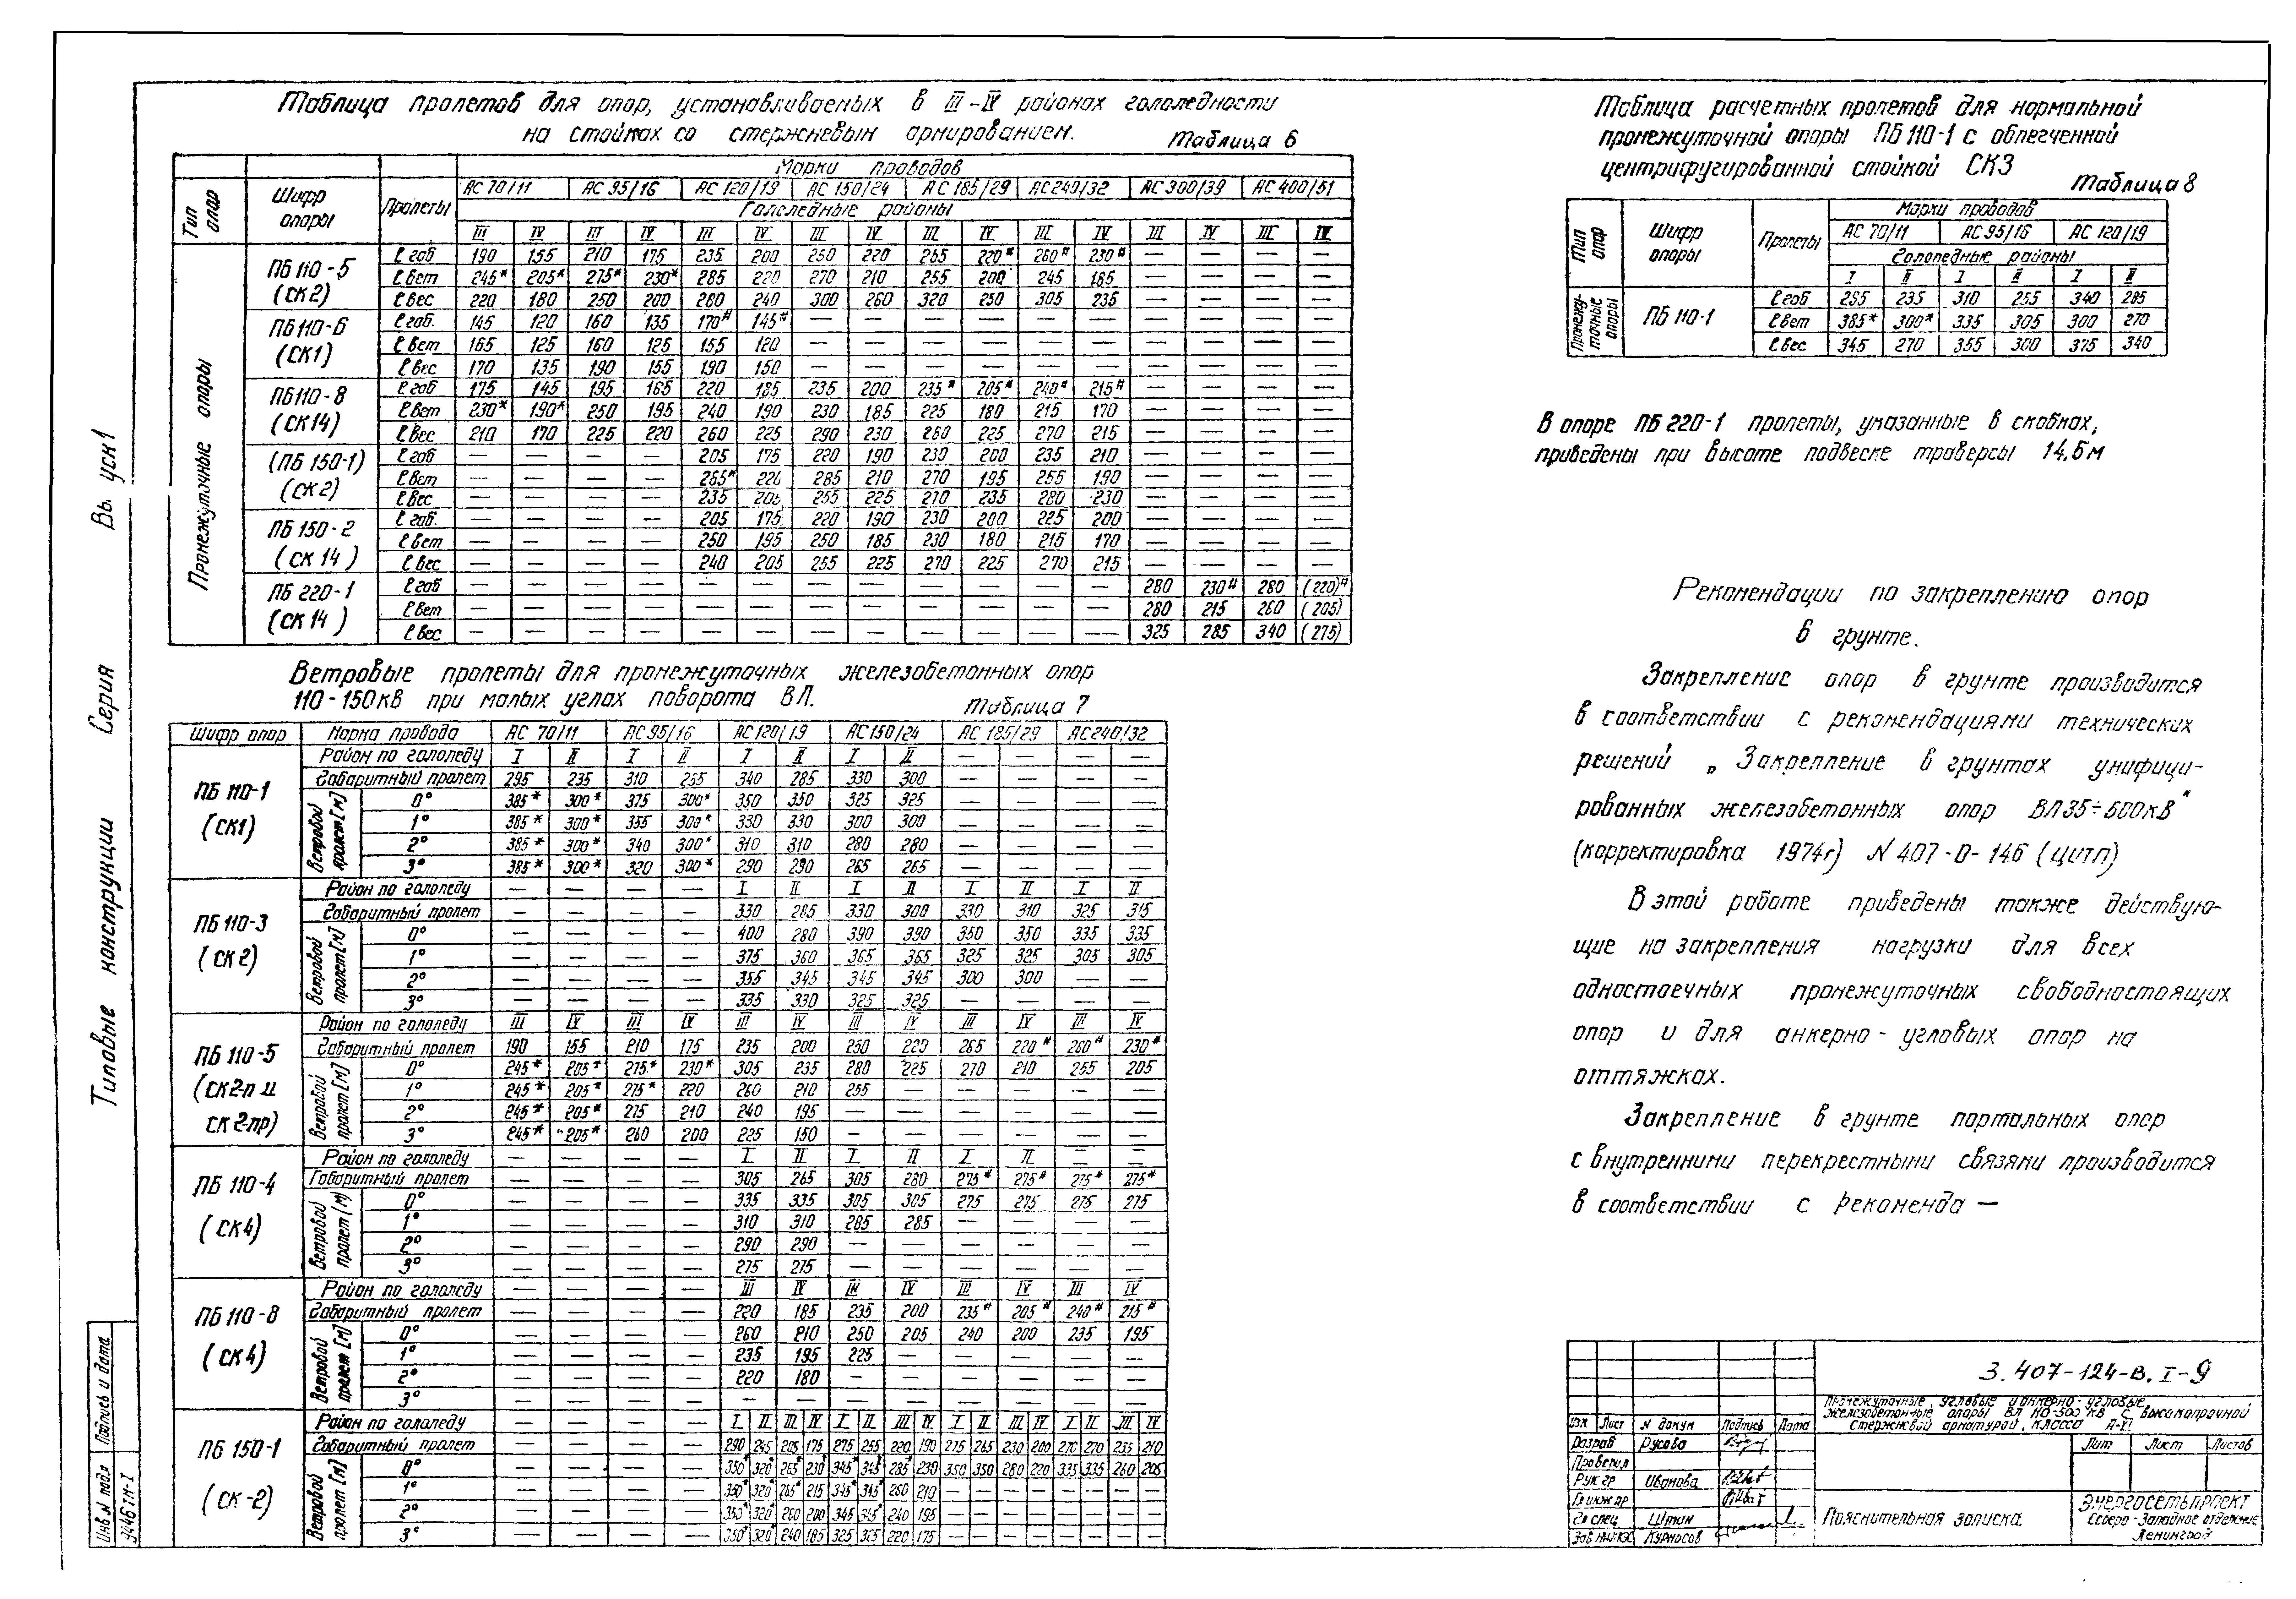 Таблица пролетов для опор, устанавливаемых в III-IV районах гололедности
на стойках со стержневым армированием.
Таблица 6
Марки проводов
Тип опор Шифр опоры Пролеты АС 70/11 АС 95/16 АС 120/19 АС 150/24 АС 185/29 АС 240/32 АС 300/39 АС 400/51
Гололедные районы
III IV III IV III IV III IV III IV III IV III IV III IV
Промежуточные опоры
ПБ 110-5 (СК2) ℓ габ 190 155 210 175 235 200 250 220 265 220* 260* 230* — — — —
ℓ вет 245* 205* 275* 230* 285 220 270 210 255 200 245 185 — — — —
ℓ вес 220 180 250 200 280 240 300 260 320 250 305 235 — — — —
ПБ 110-6 (СК1) ℓ габ. 145 120 160 135 170* 145* — — — — — — — — — —
ℓ вет 165 125 160 125 155 120 — — — — — — — — — —
ℓ вес 170 135 190 155 190 150 — — — — — — — — — —
ПБ 110-8 (СК14) ℓ габ 175 145 195 165 220 185 235 200 235* 205* 240* 215* — — — —
ℓ вет 230* 190* 250 195 240 190 230 185 225 180 215 170 — — — —
ℓ вес 210 170 225 220 260 225 290 230 260 225 270 215 — — — —
(ПБ 150-1) (СК2) ℓ габ — — — — 205 175 220 190 230 200 235 210 — — — —
ℓ вет — — — — 265* 220 285 210 270 195 255 190 — — — —
ℓ вес — — — — 235 205 255 225 270 235 280 230 — — — —
ПБ 150-2 (СК 14) ℓ габ. — — — — 205 175 220 190 230 200 225 200 — — — —
ℓ вет — — — — 250 195 250 185 230 180 215 170 — — — —
ℓ вес — — — — 240 205 255 225 270 225 270 215 — — — —
ПБ 220-1 (СК14) ℓ габ — — — — — — — — — — — — 280 230* 280 (220)*
ℓ вет — — — — — — — — — — — — 280 215 260 (205)
ℓ вес — — — — — — — — — — — — 325 285 340 (275)
Ветровые пролеты для промежуточных железобетонных опор
110-150кВ при малых углах поворота ВЛ.
Таблица 7
Шифр опор Марка провода АС 70/11 АС 95/16 АС 120/19 АС 150/24 АС 185/29 АС 240/32
ПБ 110-1 (СК1) Район по гололеду I II I II I II I II — — — —
Габаритный пролет 295 235 310 255 340 285 330 300 — — — —
Ветровой пролет [м] 0° 385* 300* 375 300* 350 350 325 325 — — — —
1° 385* 300* 355 300* 330 330 300 300 — — — —
2° 385* 300* 340 300* 310 310 280 280 — — — —
3° 385* 300* 320 300* 290 290 265 265 — — — —
ПБ 110-3 (СК2) Район по гололеду — — — — I II I II I II I II
Габаритный пролет — — — — 330 285 330 300 330 310 325 315
Ветровой пролет [м] 0° — — — — 400 280 390 390 350 350 335 335
1° — — — — 375 360 365 365 325 325 305 305
2° — — — — 355 345 345 345 300 300 — —
3° — — — — 335 330 325 325 — — — —
ПБ 110-5 (СК2-п и СК2-пр) Район по гололеду III IV III IV III IV III IV III IV III IV
Габаритный пролет 190 155 210 175 235 200 250 220 265 220* 260* 230*
Ветровой пролет [м] 0° 245* 205* 275* 230* 305 235 280 225 270 210 255 205
1° 245* 205* 275* 220 260 210 255 — — — — —
2° 245* 205* 275 210 240 195 — — — — — —
3° 245* 205* 260 200 225 150 — — — — — —
ПБ 110-4 (СК4) Район по гололеду — — — — I II I II I II — —
Габаритный пролет — — — — 305 265 305 280 275* 275* 275* 275*
Ветровой пролет (м) 0° — — — — 335 335 305 305 275 275 275 275
1° — — — — 310 310 285 285 — — — —
2° — — — — 290 290 — — — — — —
3° — — — — 275 275 — — — — — —
ПБ 110-8 (СК4) Район по гололеду — — — — III IV III IV III IV III IV
Габаритный пролет — — — — 220 185 235 200 235* 205* 240* 215*
Ветровой пролет [м] 0° — — — — 260 210 250 205 240 200 235 195
1° — — — — 235 195 225 — — — — —
2° — — — — 220 180 — — — — — —
3° — — — — — — — — — — — —
ПБ 150-1 (СК-2) Район по гололеду — — — — I II III IV I II III IV I II III IV I II III IV
Габаритный пролет — — — — 290 245 205 175 275 255 220 190 275 265 230 200 270 270 235 210
Ветровой пролет [м] 0° — — — — 350* 320* 265* 230* 345* 345* 285* 230 350 350 280 220 335 335 260 205
1° — — — — 350* 320* 265* 215 345* 345* 260 210 — — — — — — — —
2° — — — — 350* 320* 260 200 345 345* 240 195 — — — — — — — —
3° — — — — 350* 320* 240 185 325 325 220 175 — — — — — — — —
Таблица расчетных пролетов для нормальной
промежуточной опоры ПБ 110-1 с облегченной
центрифугированной стойкой СК3
Таблица 8
Марки проводов
Тип опор Шифр опоры Пролеты АС 70/11 АС 95/16 АС 120/19
Гололедные районы
I II I II I II
Промежуточные опоры ПБ 110-1 ℓ габ 295 235 310 255 340 285
ℓ вет 385* 300* 335 305 300 270
ℓ вес 345 270 355 300 375 340
В опоре ПБ 220-1 пролеты, указанные в скобках,
приведены при высоте подвеске траверсы 14,5м
Рекомендации по закреплению опор
в грунте.
Закрепление опор в грунте производится
в соответствии с рекомендациями технических
решений „Закрепление в грунтах унифици-
рованных железобетонных опор ВЛ35÷500кВ"
(корректировка 1974г) N 407-0-146 (ЦИТП)
В этой работе приведены также действую-
щие на закрепления нагрузки для всех
одностоечных промежуточных свободностоящих
опор и для анкерно-угловых опор на
оттяжках.
Закрепление в грунте портальных опор
с внутренними перекрестными связями производится
в соответствии с рекоменда—
3.407-124-В.I-9
Промежуточные, угловые и анкерно-угловые
железобетонные опоры ВЛ 110-500 кВ с высокопрочной
стержнвой арматурой, класса А-VI
Изм Лист N докум Подпись Дата
Разраб Русова
Проверил
Рук гр Иванова
Гл инж пр
Гл спец Штин
Зав НИЛКЭС Курносов
Лит Лист Листов
Пояснительная записка
Энергосетьпроект
Северо-Западное отделение
Ленинград
Типовые конструкции Серия Вы уск1
Инв N подл Подпись и дата
3446тм-I